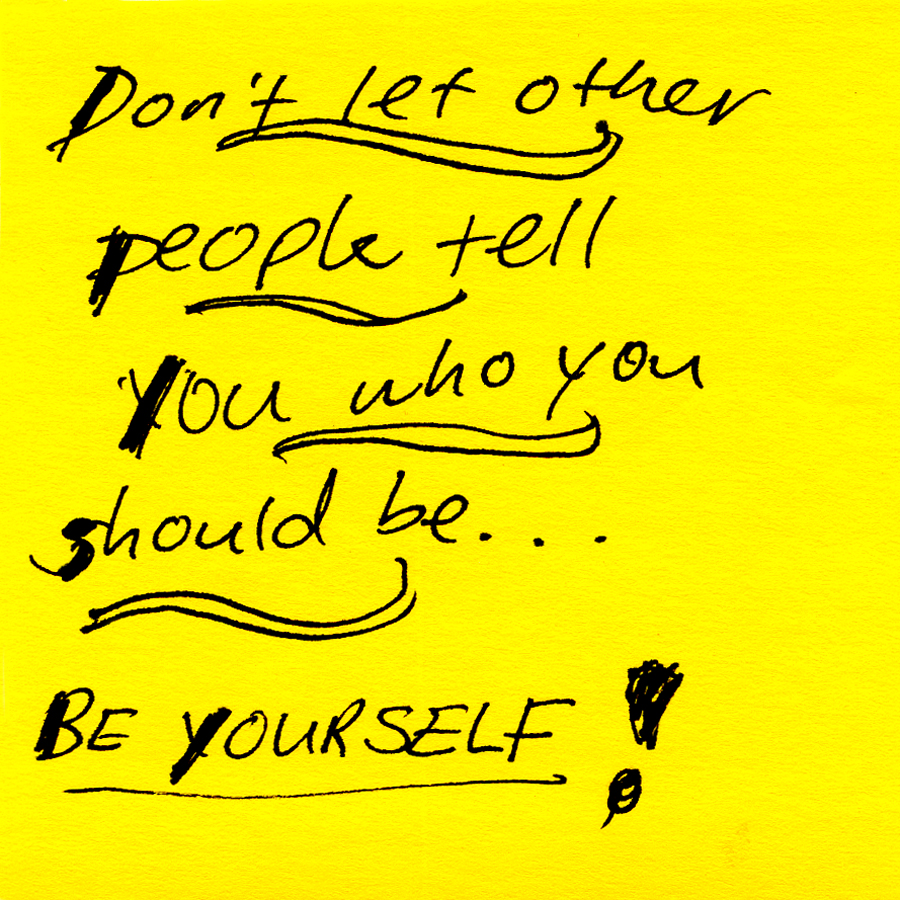 Don't let other
people tell
You who you
should be...
BE YOURSELF!